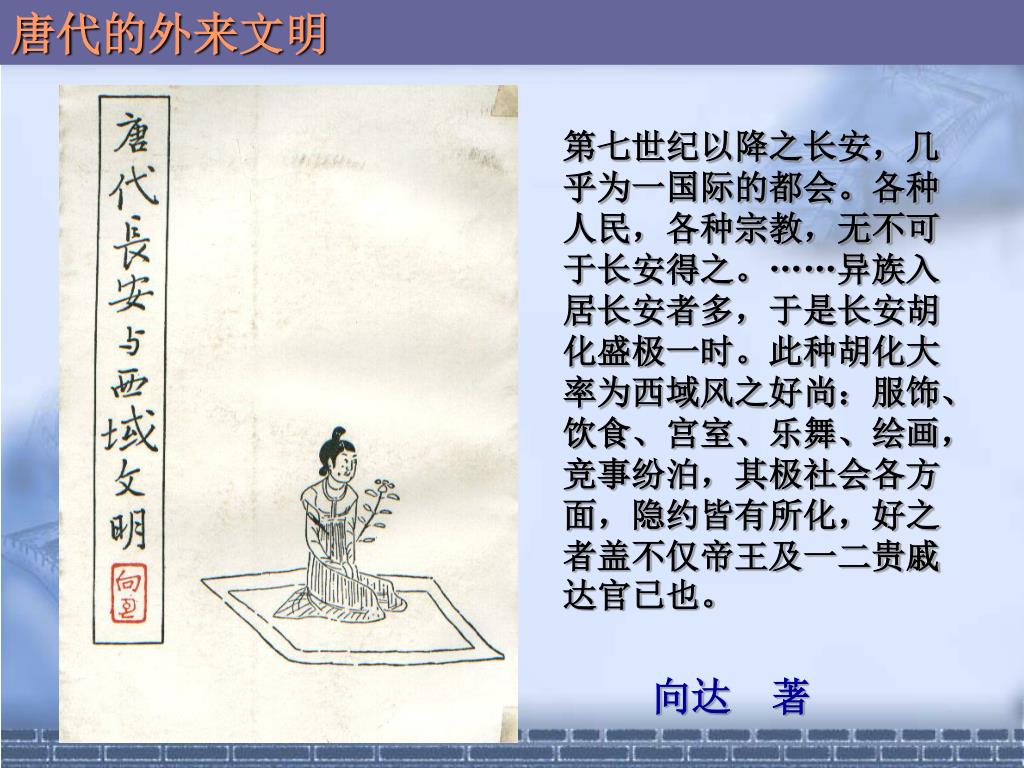 唐代的外来文明
唐代長安与西域文明
第七世纪以降之长安，几
乎为一国际的都会。各种
人民，各种宗教，无不可
于长安得之。……异族入
居长安者多，于是长安胡
化盛极一时。此种胡化大
率为西域风之好尚：服饰、
饮食、宫室、乐舞、绘画，
竞事纷泊，其极社会各方
面，隐约皆有所化，好之
者盖不仅帝王及一二贵戚
达官已也。
向达 著